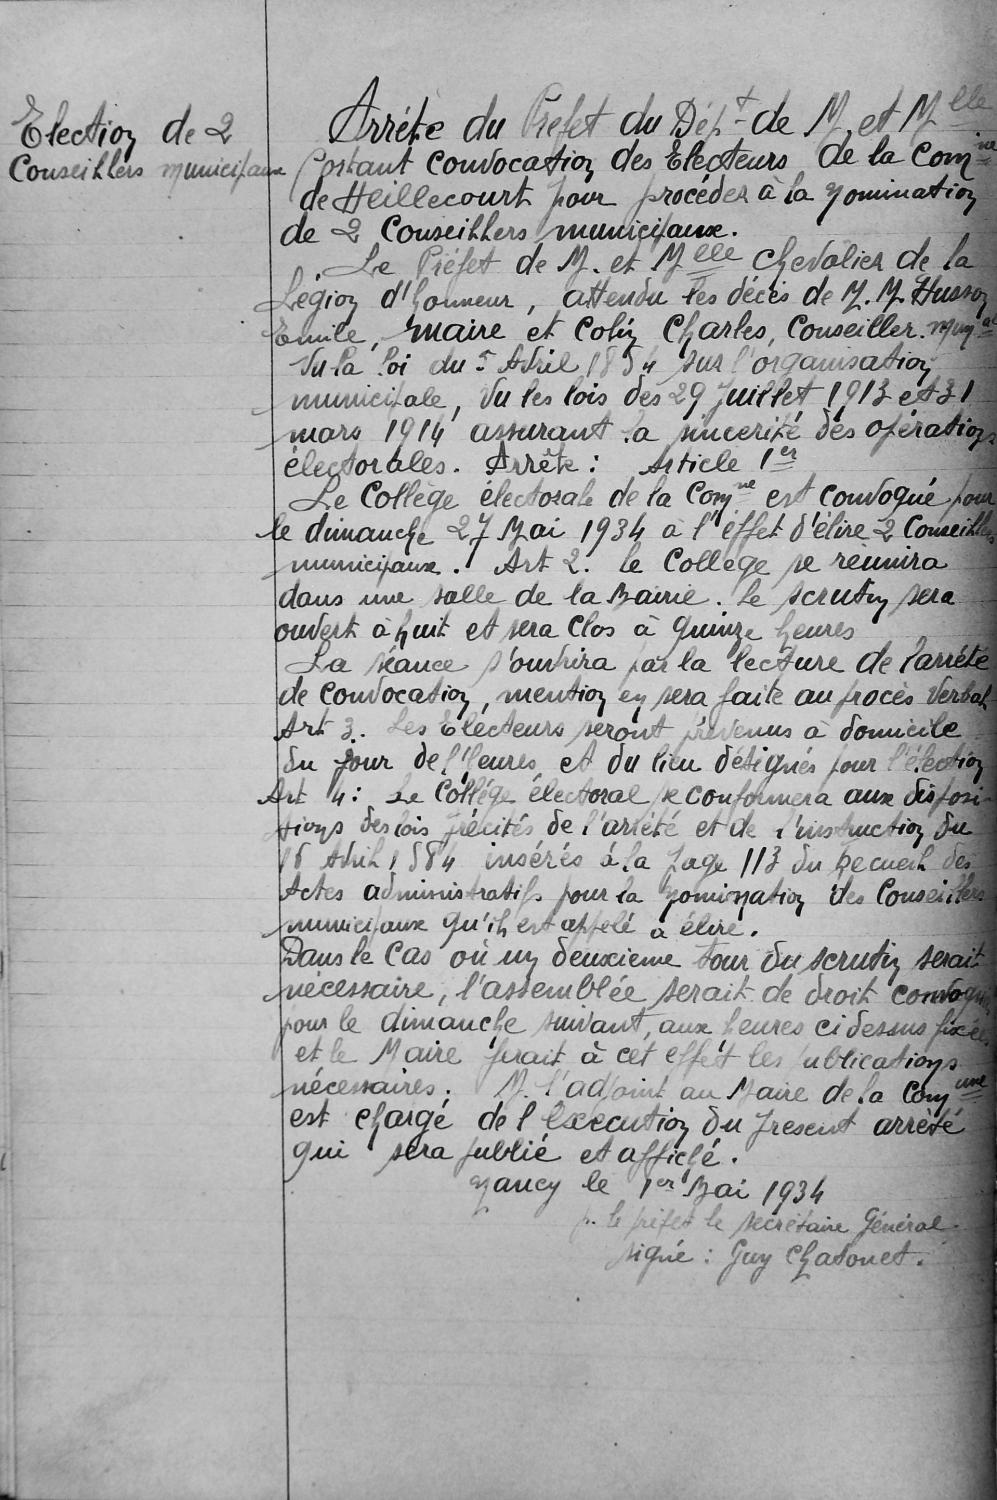 Election de 2
Conseillers municipaux
Arrêté du Préfet du Dépt de M. et Mlle
portant convocation des Electeurs de la Comne
de Heillecourt pour procéder à la nomination
de 2 Conseillers municipaux.
Le Préfet de M. et Mlle chevalier de la
Légion d'honneur, attendu les décès de M.M. Husson
Emile, maire et Colin Charles, Conseiller. Munal
Vu la loi du 5 Avril 1854 sur l'organisation
municipale, Vu les lois des 29 Juillet 1913 et 31
mars 1914 assurant la sincerité des opérations
électorales. Arrête : Article 1er
Le Collège électorale de la Comne est convoqué pour
le dimanche 27 Mai 1934 à l'éffet d'élire 2 Conseillers
municipaux. Art 2. le Collège se réunira
dans une salle de la Mairie. Le scrutin sera
ouvert à huit et sera Clos à quinze heures
La séance s'ouvrira par la lecture de l'arrêté
de convocation, mention en sera faite au procès verbal
Art 3. Les Electeurs seront prévenus à domicile
du jour de l'heures et du lieu désignés pour l'élection
Art 4 : Le Collége électoral se conformera aux disposi-
tions des lois précités de l'arrêté et de l'instruction du
Avril 1884 insérés à la page 113 du Recueil des
Actes administratifs pour la nomination des Conseillers
municipaux qu'il est appelé à élire.
Dans le Cas où un deuxieme tour du scrutin serait
nécessaire, l'assemblée serait de droit convoquée
pour le dimanche suivant, aux heures ci dessus fixées
et le Maire ferait à cet effet les publications
nécessaires. M. l'adjoint au Maire de la Comune
est chargé de l'Execution du present arrêté
qui sera publié et affiché.
Nancy le 1er Mai 1934
p. le préfet le secrétaire Général.
signé : Guy Chatonet.